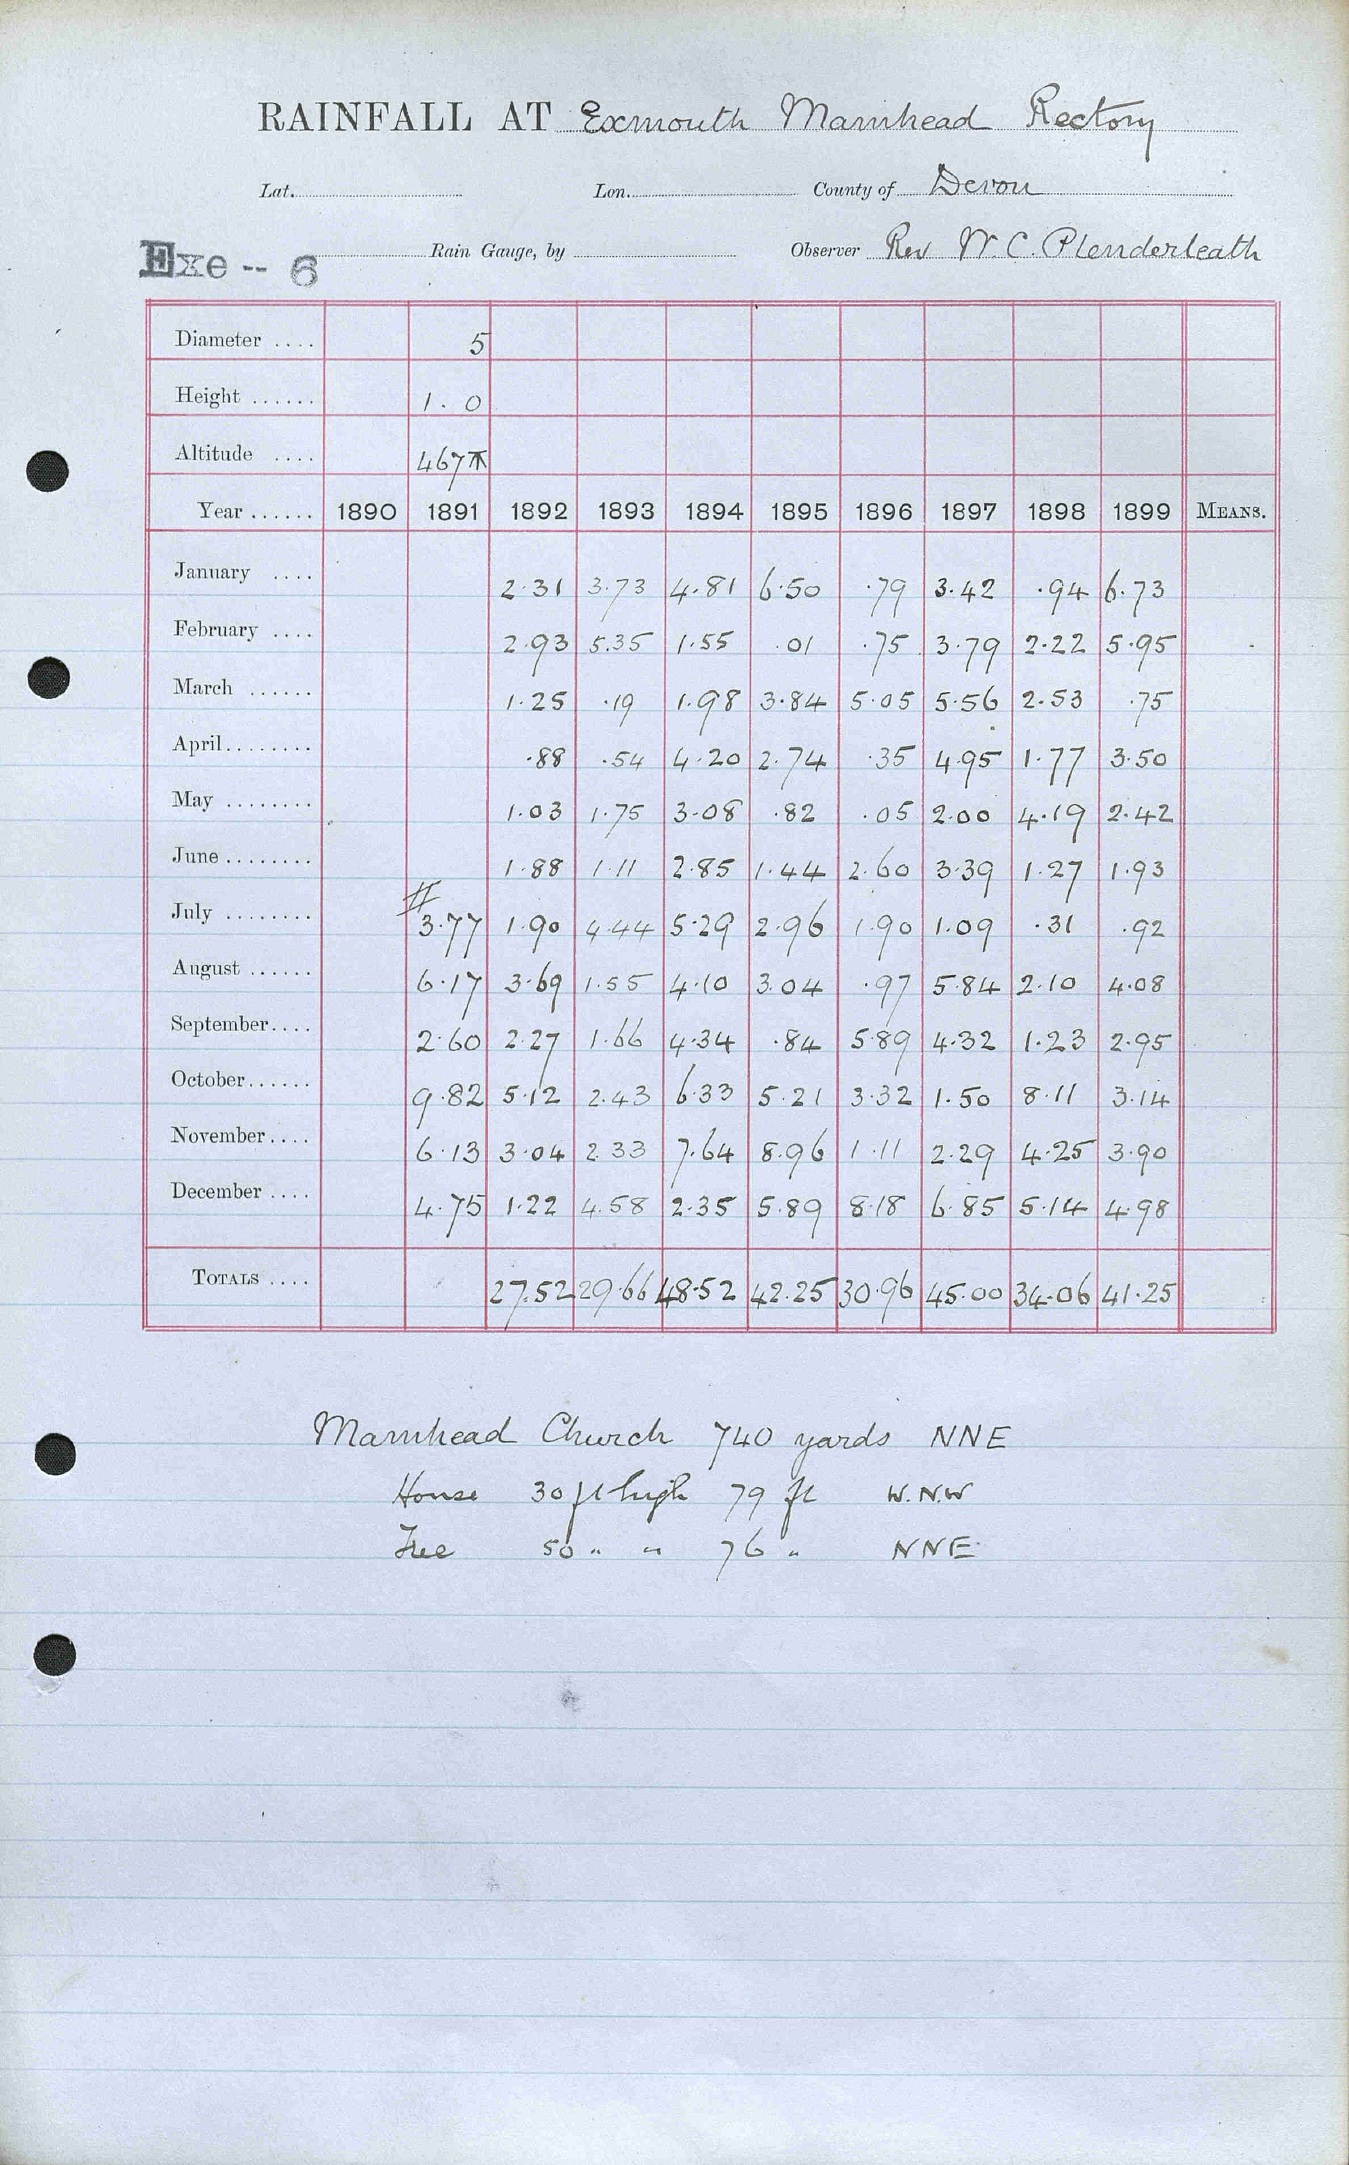 RAINFALL AT Exmouth Mamhead Rectory
Lat. Lon. County of Devon
Exe -- 6 Rain Gauge, by Observer Rev W. C. Plenderleath
Diameter .... 5
Height ...... 1.0
Altitude .... 467
Year ...... 1890 1891 1892 1893 1894 1895 1896 1897 1898 1899 MEANS.
January .... 2.31 3.73 4.81 6.50 .79 3.42 .94 6.73
February .... 2.93 5.35 1.55 .01 .75 3.79 2.22 5.95
March ...... 1.25 .19 1.98 3.84 5.05 5.56 2.53 .75
April........ .88 .54 4.20 2.74 .35 4.95 1.77 3.50
May ........ 1.03 1.75 3.08 .82 .05 2.00 4.19 2.42
June ........ 1.88 1.11 2.85 1.44 2.60 3.39 1.27 1.93
July ........ # 3.77 1.90 4.44 5.29 2.96 1.90 1.09 .31 .92
August ...... 6.17 3.69 1.55 4.10 3.04 .97 5.84 2.10 4.08
September.... 2.60 2.27 1.66 4.34 .84 5.89 4.32 1.23 2.95
October...... 9.82 5.12 2.43 6.33 5.21 3.32 1.50 8.11 3.14
November.... 6.13 3.04 2.33 7.64 8.96 1.11 2.29 4.25 3.90
December .... 4.75 1.22 4.58 2.35 5.89 8.18 6.85 5.14 4.98
TOTALS .... 27.52 29.66 48.52 42.25 30.96 45.00 34.06 41.25
Mamhead Church 740 yards NNE
House 30 ft high 79 ft W.N.W
Tree 50 " " 76 " NNE